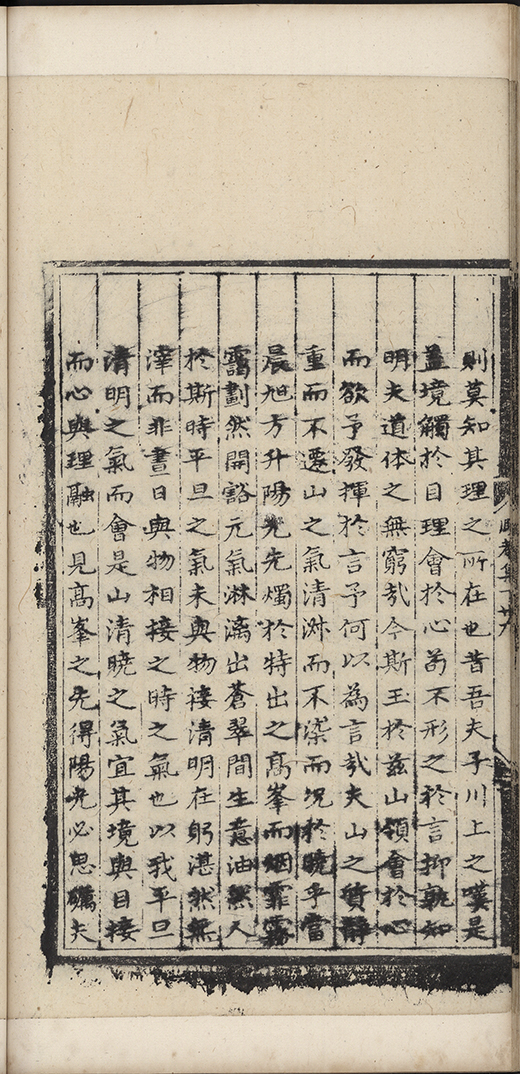 則莫知其理之所在也昔吾夫子川上之嘆是
盖境觸於目理會於心苟不形之於言抑孰知
明夫道体之無窮㢤今斯玉於兹山領會於心
而欲予發揮於言予何以為言㢤夫山之質靜
重而不遷山之氣清淑而不渫而况於曉乎當
晨旭方升陽光先燭於特出之高峯而烟霏霧
靄劃然開豁元氣淋漓出蒼翠間生意油然人
於斯時平旦之氣未與物接清明在躬湛然無
滓而非晝日與物相接之時之氣也以我平旦
清明之氣而會是山清曉之氣宜其境與目接
而心與理融也見高峯之先得陽光必思礪夫